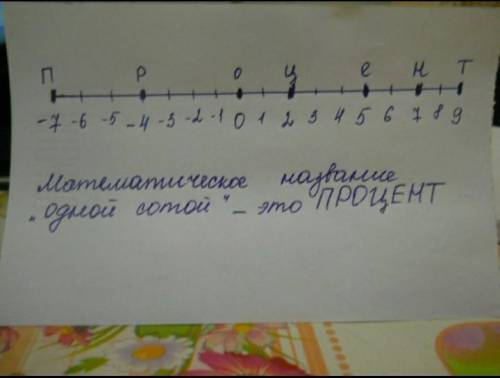 П Р О Ц Е Н Т
-7 -6 -5 -4 -3 -2 -1 0 1 2 3 4 5 6 7 8 9
Математическое название
„одной сотой" – это ПРОЦЕНТ